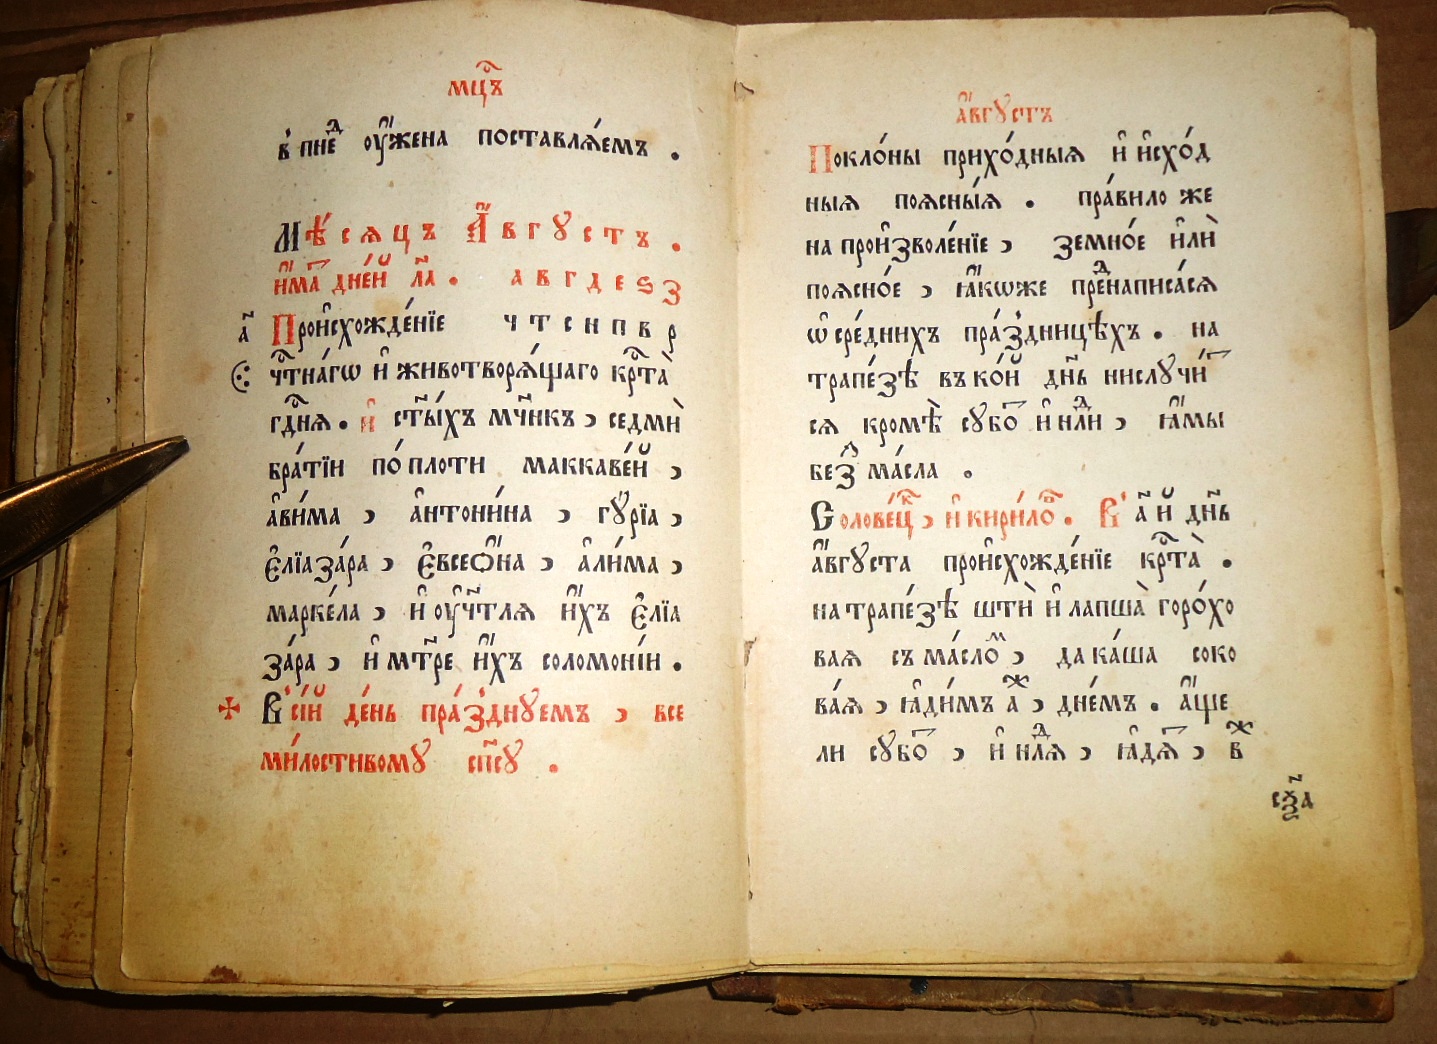 мцⷭ҇ъ
в̾ пнеⷣ ᲂу҆́жена поставлѧ́емъ .
Мѣ́сѧцъ А҆́вгꙋстъ .
и҆́маⷮ дне́й л҃а . а в г д е ѕ з
а҃ Про́исхожде́нїе ч т с н п в р
чⷭ҇тна́гѡ и҆ животворѧ́щаго крⷭ҇та̀
гдⷭ҇нѧ . и҆ ст҃ы́хъ мч҃нкъ , седмѝ
бра́тїи по́ плоти маккаве́й ,
а҆ви́ма , а҆нтони́на , гꙋ́рїа ,
є҆лїаза́ра , є҆всеѳ҆́на , а҆ли́ма ,
марке́ла , и҆ ᲂу҆чт҃лѧ и҆́хъ є҆лїа
за́ра , и҆ мт҃ре и҆́хъ соломоні́и .
В̾ сі́й де́нь пра́зднꙋемъ , все
ми́лостивомꙋ сп҃сꙋ .
а҆́вгꙋстъ
Покло́ны прихо́дныѧ и҆ и҆схо́д
ныѧ поѧсны́ѧ . пра́вило же
на прои҆зволе́нїе , земно́е и҆лѝ
поѧсно́е , ꙗ҆́коже преⷣнаписа́сѧ
ѡ҆ сре́днихъ пра́здницѣхъ . на
трапе́зѣ въ ко́й дн҃ь нислꙋчи́ⷮ
сѧ кромѣ̀ сꙋбоⷮ и҆ нлⷣи , ꙗ҆́мы
без̾ ма́сла .
Солове́цⷦ , и҆ кири́лоⷡ . В̾ а҃ й дн҃ь
а҆́вгꙋста прои҆схожде́нїе крⷭ҇та̀ .
на трапе́зѣ штѝ и҆ лапша̀ горо́хо
ваѧ съ ма́слоⷨ , да ка́ша соко
ва́ѧ , ꙗ҆ди́мъ аⷤ , дне́мъ . а҆́ще
ли сꙋбоⷮ , и҆ нлⷣѧ , ꙗ҆дѧⷮ , вⷤ